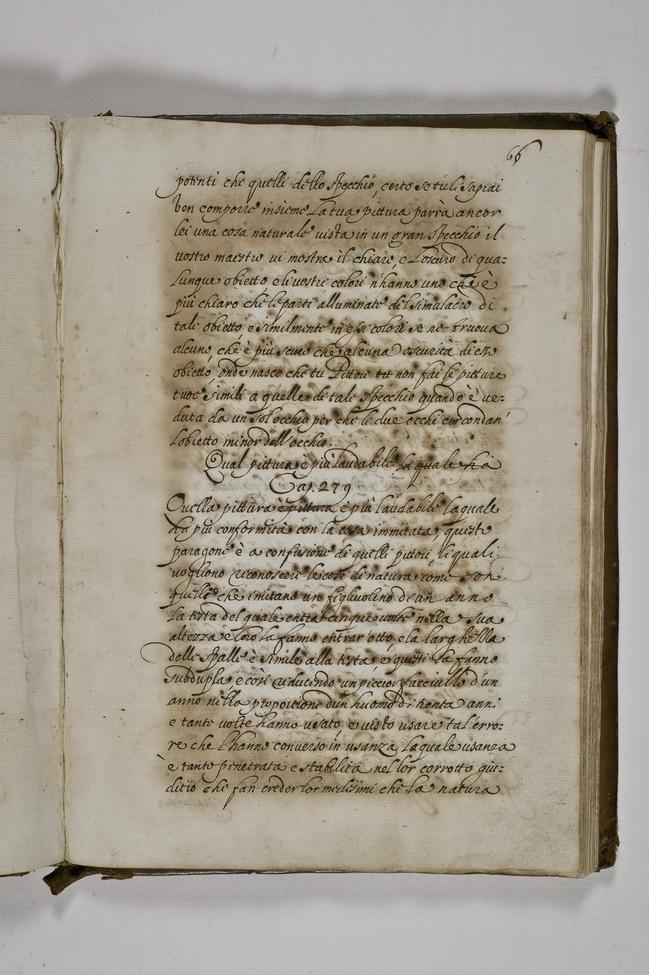 66
potenti che quelli dello specchio, certo se tu li saprai
ben comporre insieme la tua pittura parrà ancor
lei una cosa naturale vista in un gran specchio il
vostro maestro vi mostra il chiaro, e l'oscuro di qua-
lunque obietto e li vostri colori n'hanno uno che è
più chiaro che le parti alluminate del simulacro di
tale obietto e similmente in essi colori se ne truova
alcuno, che è più scuro che alcuna oscurità di esso
obietto, onde nasce che tu Pittore non fai le pitture
tuoe simili a quelle di tale specchio quando è ve-
duta da un sol occhio per che le due occhi circondan'
l'obietto minor dell'occhio.
Qual pittura è più laudabile la quale ha
Cap. 279
Quella pittura e pittura è più laudabile la quale
ha più conformità con la cosa immitata, questo
paragone è a confusione di quelli pittori, li quali
vogliono riconoscere le cose di natura come son
quelli che imitano un figliuolino di un anno
la testa del quale entra cinque volte nella sua
altezza e loro la fanno entrar otto, e la larghezza
delle spalle è simile alla testa, e questi la fanno
subdupla, e così riducendo un piccior facciullo d'un
anno nella proportione d'un huomo di trenta anni
e tante volte hanno usato, e visto usare tal erro-
re che l'hanno converso in usanza, la quale usanza
è tanto penetrata e stabilita nel lor corrotto giu-
ditio che fan creder lor medesimi che la natura